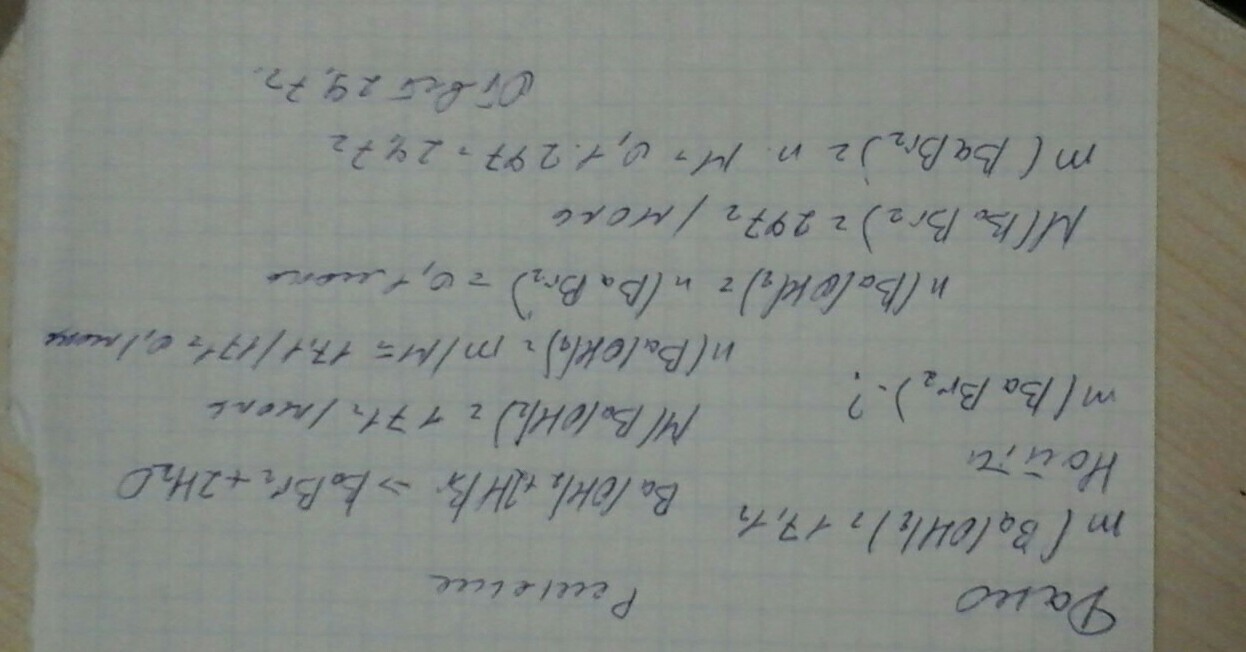 Дано
Решение
m(Ba(OH)2) = 17,1г
Ba(OH)2+2HBr → BaBr2+2H2O
Найти
M(Ba(OH)2) = 171г/моль
m(BaBr2)-?
n(Ba(OH)2) = m/M = 17,1/171 = 0,1 моль
n(Ba(OH)2) = n(BaBr2) = 0,1 моль
M(BaBr2) = 297г/моль
m(BaBr2) = n·M = 0,1·297 = 29,7г
Ответ 29,7г.